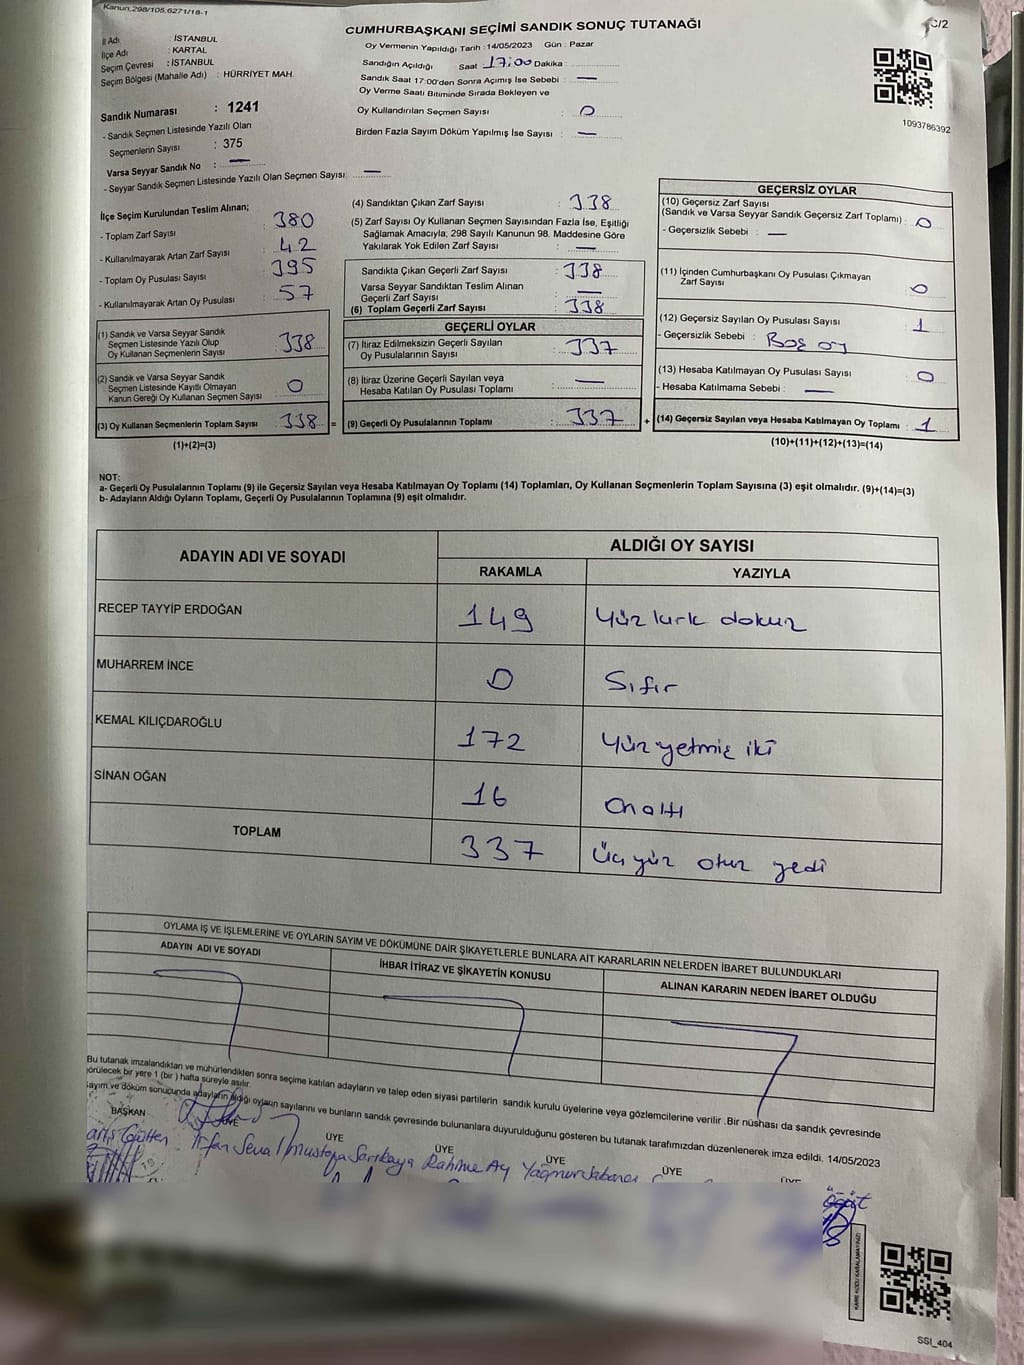 Kanun:298/105.6271/18-1
C/2
CUMHURBAŞKANI SEÇİMİ SANDIK SONUÇ TUTANAĞI
İl Adı : İSTANBUL
İlçe Adı : KARTAL
Seçim Çevresi : İSTANBUL
Seçim Bölgesi (Mahalle Adı) : HÜRRİYET MAH.
Oy Vermenin Yapıldığı Tarih : 14/05/2023 Gün : Pazar
Sandığın Açıldığı Saat 17:00 Dakika :
Sandık Saat 17:00'den Sonra Açımış İse Sebebi : —
Oy Verme Saati Bitiminde Sırada Bekleyen ve
Oy Kullandırılan Seçmen Sayısı : 0
Birden Fazla Sayım Döküm Yapılmış İse Sayısı : —
1093786392
Sandık Numarası : 1241
- Sandık Seçmen Listesinde Yazılı Olan
Seçmenlerin Sayısı : 375
Varsa Seyyar Sandık No : —
- Seyyar Sandık Seçmen Listesinde Yazılı Olan Seçmen Sayısı: —
İlçe Seçim Kurulundan Teslim Alınan;
- Toplam Zarf Sayısı : 380
- Kullanılmayarak Artan Zarf Sayısı : 42
- Toplam Oy Pusulası Sayısı : 395
- Kullanılmayarak Artan Oy Pusulası : 57
(1) Sandık ve Varsa Seyyar Sandık
Seçmen Listesinde Yazılı Olup
Oy Kullanan Seçmenlerin Sayısı : 338
(2) Sandık ve Varsa Seyyar Sandık
Seçmen Listesinde Kayıtlı Olmayan
Kanun Gereği Oy Kullanan Seçmen Sayısı : 0
(3) Oy Kullanan Seçmenlerin Toplam Sayısı : 338 =
(1)+(2)=(3)
(4) Sandıktan Çıkan Zarf Sayısı : 338
(5) Zarf Sayısı Oy Kullanan Seçmen Sayısından Fazla İse, Eşitliği
Sağlamak Amacıyla, 298 Sayılı Kanunun 98. Maddesine Göre
Yakılarak Yok Edilen Zarf Sayısı : —
Sandıkta Çıkan Geçerli Zarf Sayısı : 338
Varsa Seyyar Sandıktan Teslim Alınan
Geçerli Zarf Sayısı : —
(6) Toplam Geçerli Zarf Sayısı : 338
GEÇERLİ OYLAR
(7) İtiraz Edilmeksizin Geçerli Sayılan
Oy Pusulalarının Sayısı : 337
(8) İtiraz Üzerine Geçerli Sayılan veya
Hesaba Katılan Oy Pusulası Toplamı : —
(9) Geçerli Oy Pusulalarının Toplamı : 337 +
GEÇERSİZ OYLAR
(10) Geçersiz Zarf Sayısı
(Sandık ve Varsa Seyyar Sandık Geçersiz Zarf Toplamı) : 0
- Geçersizlik Sebebi : —
(11) İçinden Cumhurbaşkanı Oy Pusulası Çıkmayan
Zarf Sayısı : 0
(12) Geçersiz Sayılan Oy Pusulası Sayısı : 1
- Geçersizlik Sebebi : Boş oy
(13) Hesaba Katılmayan Oy Pusulası Sayısı : 0
- Hesaba Katılmama Sebebi : —
(14) Geçersiz Sayılan veya Hesaba Katılmayan Oy Toplamı : 1
(10)+(11)+(12)+(13)=(14)
NOT:
a- Geçerli Oy Pusulalarının Toplamı (9) ile Geçersiz Sayılan veya Hesaba Katılmayan Oy Toplamı (14) Toplamları, Oy Kullanan Seçmenlerin Toplam Sayısına (3) eşit olmalıdır. (9)+(14)=(3)
b- Adayların Aldığı Oyların Toplamı, Geçerli Oy Pusulalarının Toplamına (9) eşit olmalıdır.
ADAYIN ADI VE SOYADI
ALDIĞI OY SAYISI
RAKAMLA YAZIYLA
RECEP TAYYİP ERDOĞAN 149 Yüz kırk dokuz
MUHARREM İNCE 0 Sıfır
KEMAL KILIÇDAROĞLU 172 Yüz yetmiş iki
SİNAN OĞAN 16 Onaltı
TOPLAM 337 Üçyüz otuz yedi
OYLAMA İŞ VE İŞLEMLERİNE VE OYLARIN SAYIM VE DÖKÜMÜNE DAİR ŞİKAYETLERLE BUNLARA AİT KARARLARIN NELERDEN İBARET BULUNDUKLARI
ADAYIN ADI VE SOYADI İHBAR İTİRAZ VE ŞİKAYETİN KONUSU ALINAN KARARIN NEDEN İBARET OLDUĞU
Bu tutanak imzalandıktan ve mühürlendikten sonra seçime katılan adayların ve talep eden siyasi partilerin sandık kurulu üyelerine veya gözlemcilerine verilir .Bir nüshası da sandık çevresinde
görülecek bir yere 1 (bir ) hafta süreyle asılır.
Sayım ve döküm sonucunda adayların aldığı oyların sayılarını ve bunların sandık çevresinde bulunanlara duyurulduğunu gösteren bu tutanak tarafımızdan düzenlenerek imza edildi. 14/05/2023
BAŞKAN ÜYE ÜYE ÜYE ÜYE ÜYE ÜYE
İrfan Mustafa Sarıkaya Rahime Ay Yağmur
KARE KODU KARALAMAYINIZ!
SSI_404